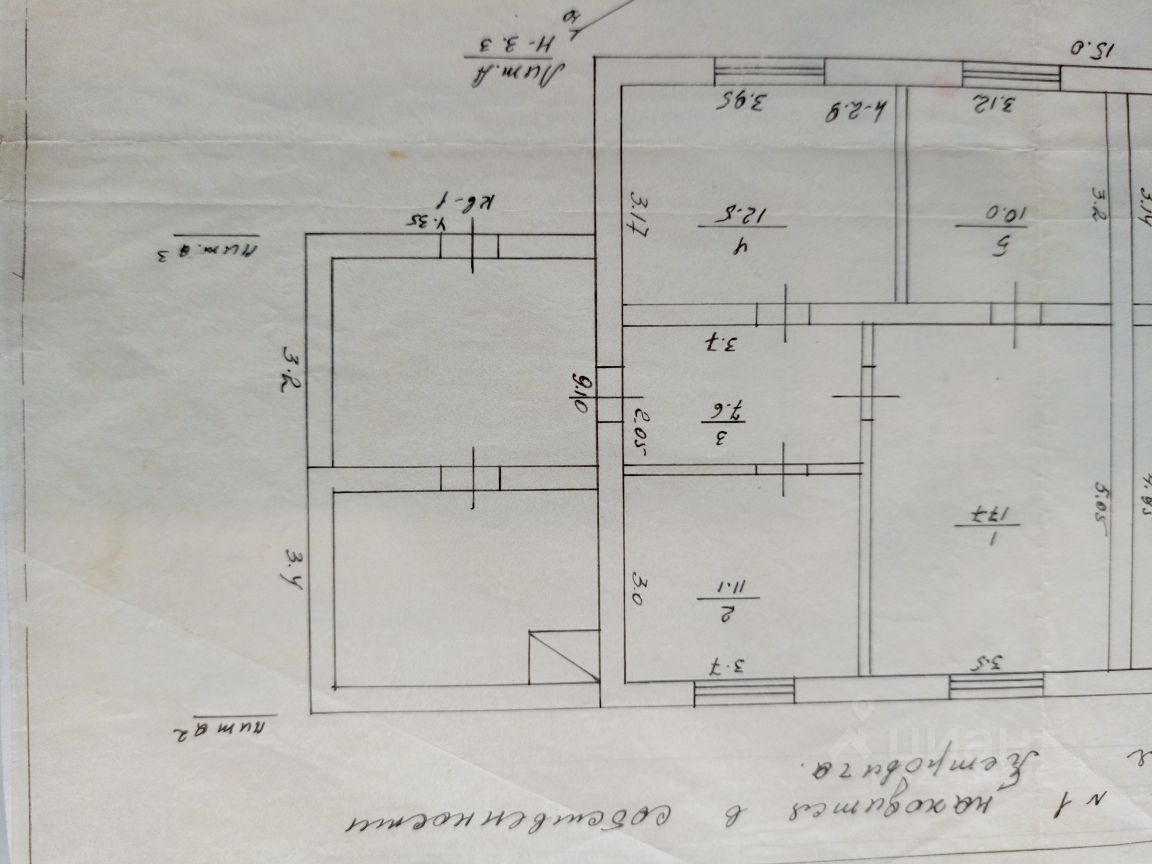 N1 находится в собственности
Петровича.
лит а2
3.5
3.7
1
17.7
2
11.1
3.0
5.05
3.4
3
7.6
2.05
3.7
9.10
3.2
5
10.0
4
12.5
3.2
3.17
3.14
лит. а3
4.35
кв-1
3.12
3.95
h-2.9
15.0
Лит. А
Н-3.3
циан